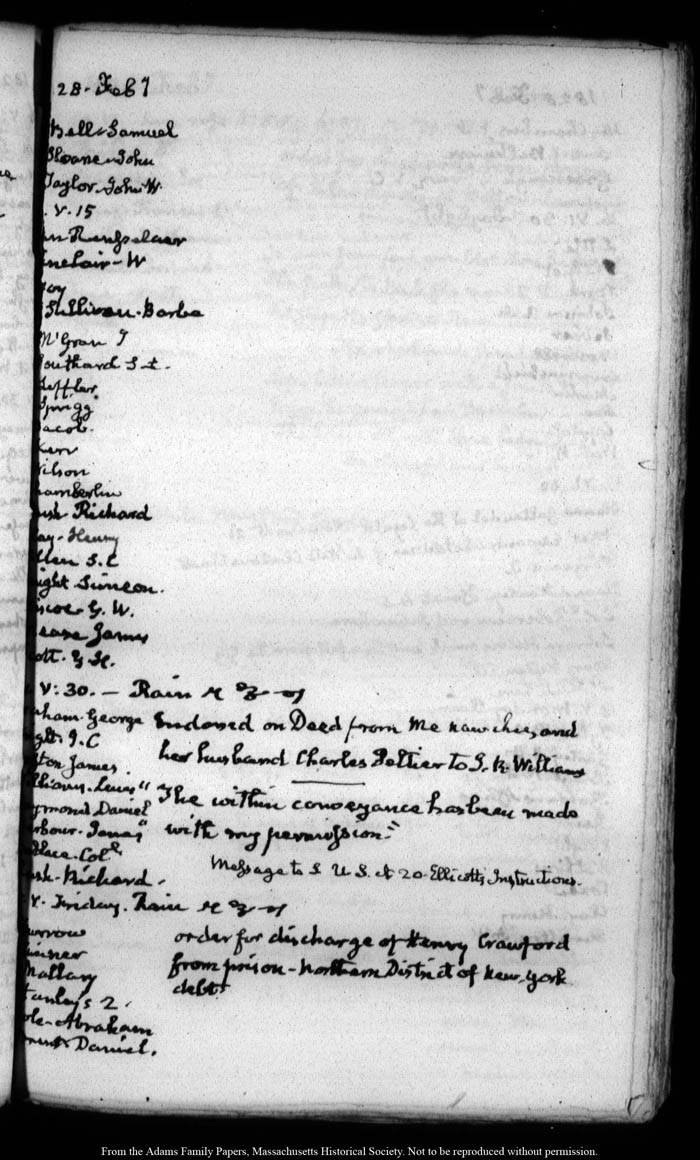 28. Feb 7
Bell Samuel
Sloane John
Taylor John W.
. V. 15
n Rensselaer
nclair-W
oy
Sullivan-Barba
McGran T
outhard S. L.
effler.
Sprigg
acob.
Kerr
ilson
hamberlin
ush Richard
lay-Henry
llen S. C
ight Simeon.
iscoe G. W.
ease James
ott. G H.
V: 30. — Rain
ham George Endorsed on Deed from Me naw chee, and
ght. J. C her husband Charles Peltier to S. K. Williams
ton James.
Lewis
The within conveyance has been made
ymond Daniel
rbour. James with my permission.
lace Col.
Message to S U S. at 20 Ellicotts Instructions.
ush-Richard.
V. Friday. Rain
urrow order for discharge of Henry Crawford
Mallary from prison-northern District of New-York
debt
tanlys 2.
ole-Abraham
Daniel.
From the Adams Family Papers, Massachusetts Historical Society. Not to be reproduced without permission.